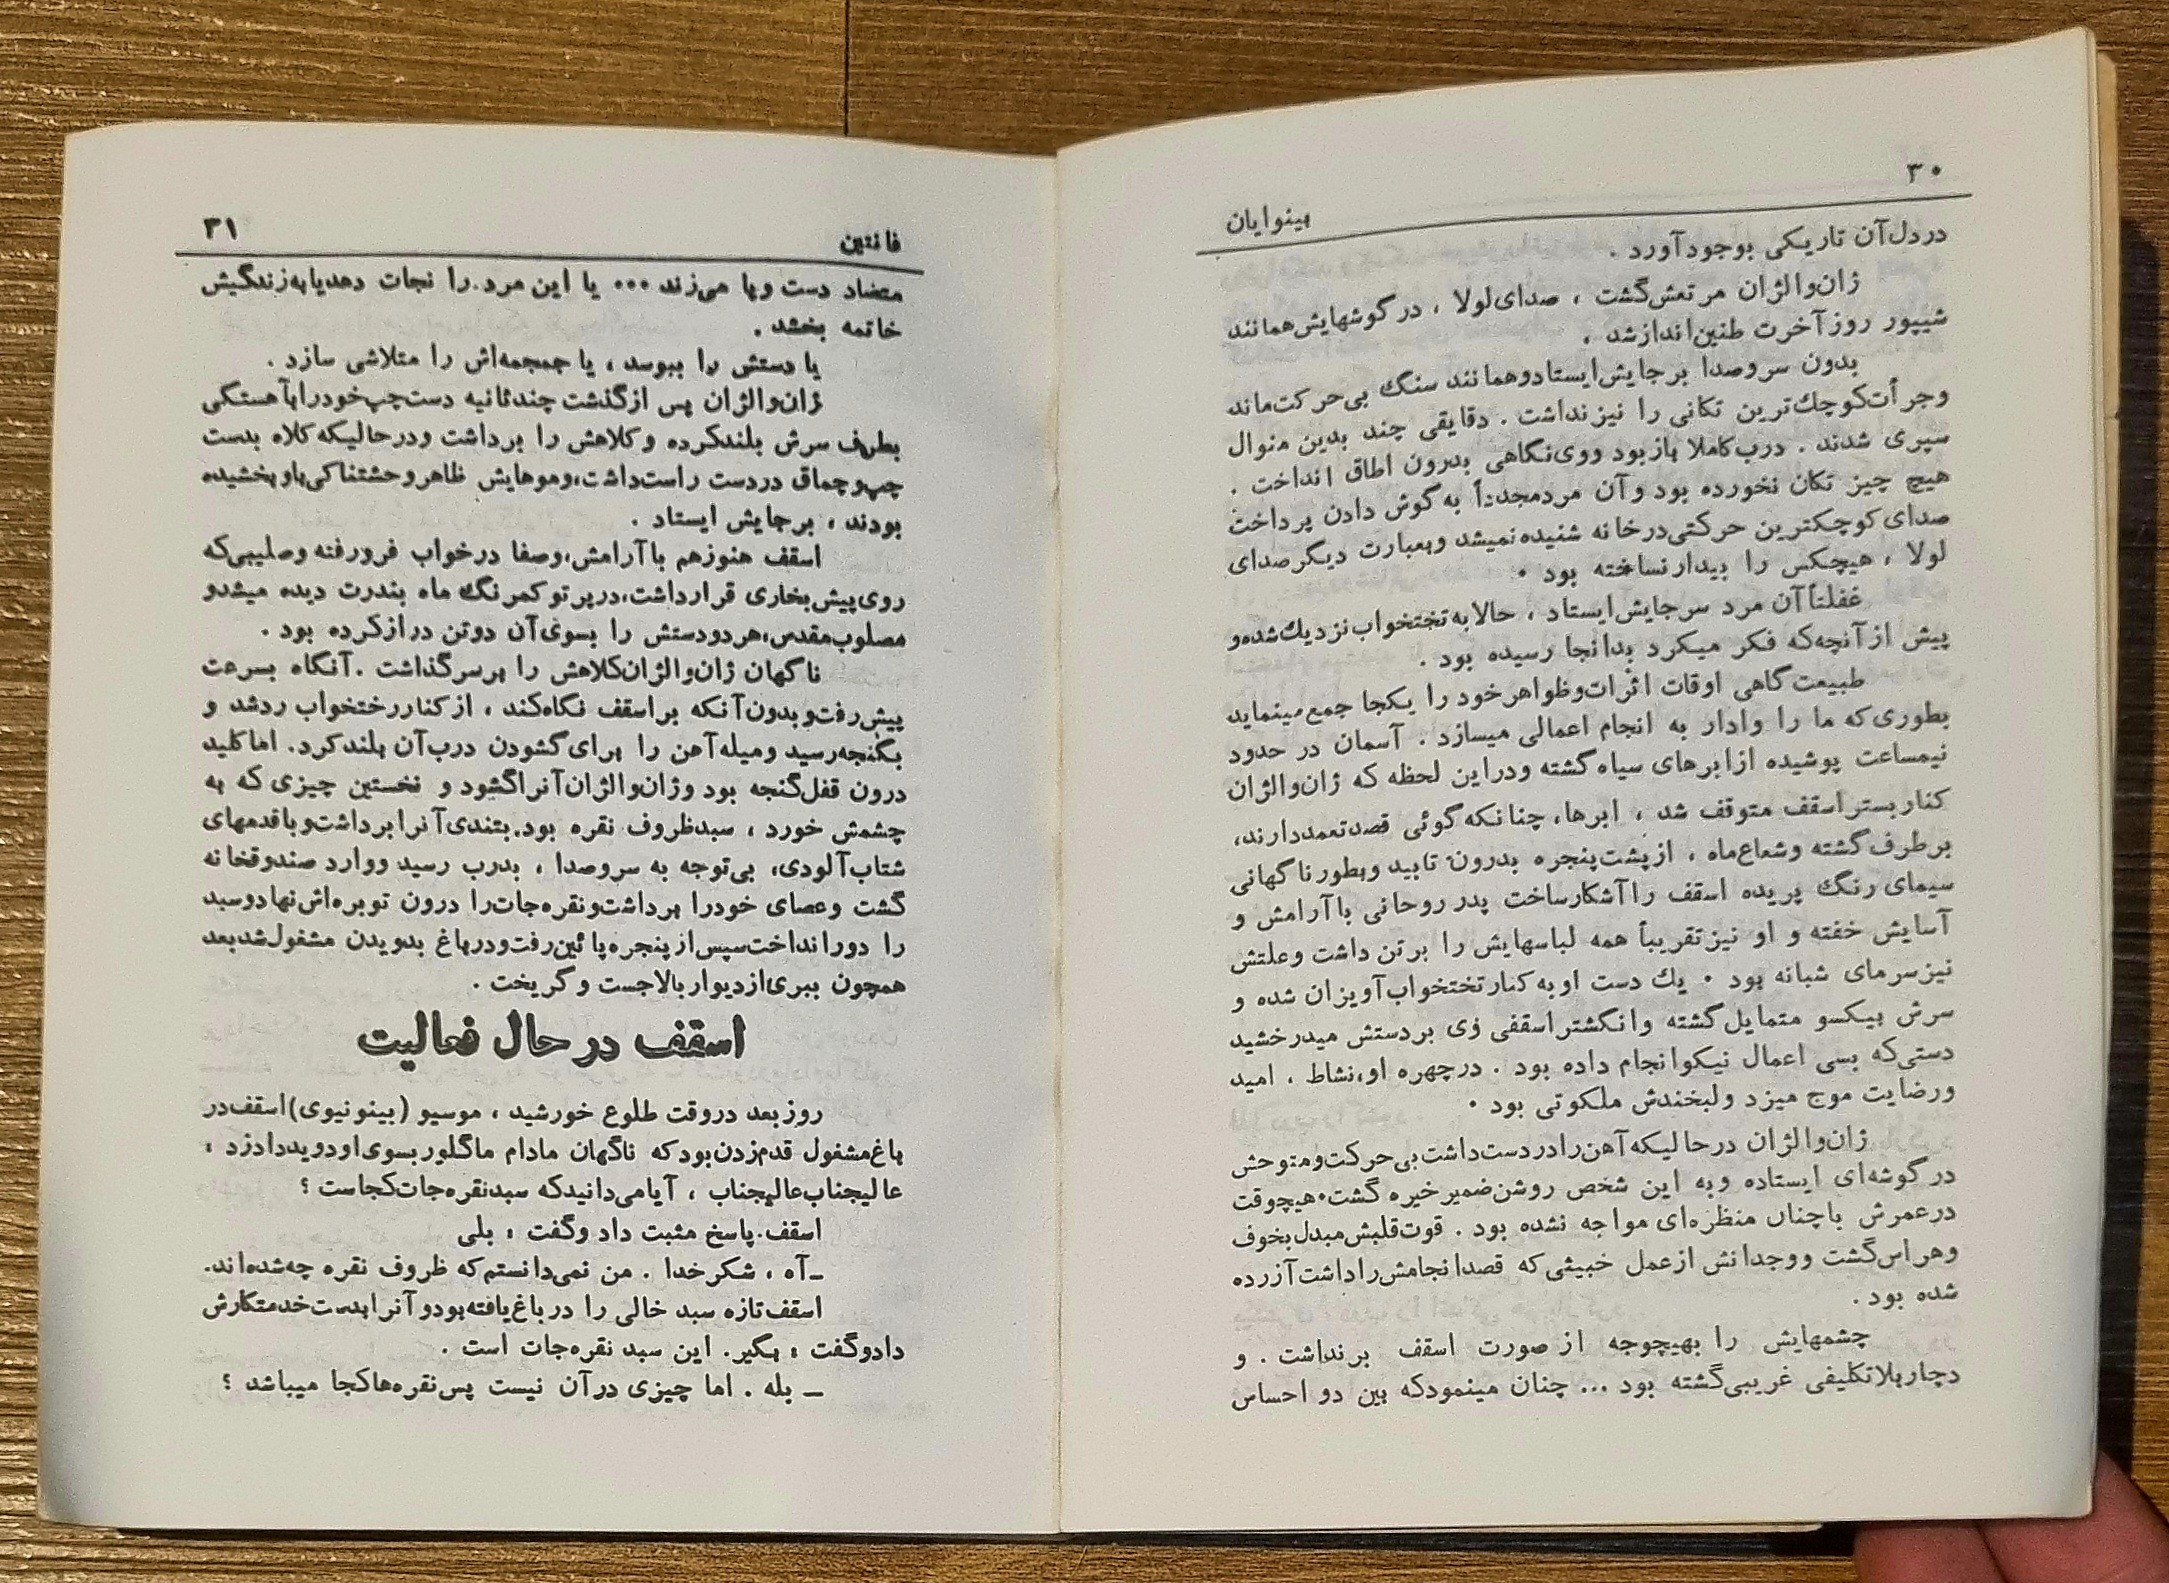 ۳۰
بینوایان
در دل آن تاریکی بوجود آورد .
ژان والژان مرتعش گشت ، صدای لولا ، در گوشهایش همانند
شیپور روز آخرت طنین انداز شد .
بدون سر و صدا بر جایش ایستاد و همانند سنگ بی حرکت ماند
و جرأت کوچک ترین تکانی را نیز نداشت . دقایقی چند بدین منوال
سپری شدند . درب کاملا باز بود و وی نگاهی بدرون اطاق انداخت .
هیچ چیز تکان نخورده بود و آن مرد مجدداً به گوش دادن پرداخت
صدای کوچکترین حرکتی در خانه شنیده نمیشد و بعبارت دیگر صدای
لولا ، هیچکس را بیدار نساخته بود .
غفلتاً آن مرد سر جایش ایستاد ، حالا به تختخواب نزدیک شده و
پیش از آنچه که فکر میکرد بدانجا رسیده بود .
طبیعت گاهی اوقات اثرات و ظواهر خود را یکجا جمع مینماید
بطوری که ما را وادار به انجام اعمالی میسازد . آسمان در حدود
نیمساعت پوشیده از ابرهای سیاه گشته و در این لحظه که ژان والژان
کنار بستر اسقف متوقف شد ، ابرها، چنانکه گوئی قصد تعمد دارند،
بر طرف گشته و شعاع ماه ، از پشت پنجره بدرون تابید و بطور ناگهانی
سیمای رنگ پریده اسقف را آشکار ساخت پدر روحانی با آرامش و
آسایش خفته و او نیز تقریباً همه لباسهایش را بر تن داشت و علتش
نیز سرمای شبانه بود . یک دست او به کنار تختخواب آویزان شده و
سرش بیکسو متمایل گشته و انگشتر اسقفی وی بر دستش میدرخشید
دستی که بسی اعمال نیکو انجام داده بود . در چهره او، نشاط ، امید
و رضایت موج میزد و لبخندش ملکوتی بود .
ژان والژان در حالیکه آهن را در دست داشت بی حرکت و متوحش
در گوشه ای ایستاده و به این شخص روشن ضمیر خیره گشت. هیچوقت
در عمرش با چنان منظره ای مواجه نشده بود . قوت قلبش مبدل بخوف
و هراس گشت و وجدانش از عمل خبیثی که قصد انجامش را داشت آزرده
شده بود .
چشمهایش را بهیچوجه از صورت اسقف بر نداشت . و
دچار بلاتکلیفی غریبی گشته بود ... چنان مینمود که بین دو احساس
فانتین
۳۱
متضاد دست و پا می زند ... یا این مرد را نجات دهد یا به زندگیش
خاتمه بخشد .
یا دستش را ببوسد ، یا جمجمه اش را متلاشی سازد .
ژان والژان پس از گذشت چند ثانیه دست چپ خود را بآهستگی
بطرف سرش بلند کرده و کلاهش را برداشت و در حالیکه کلاه بدست
چپ و چماق در دست راست داشت، و موهایش ظاهر وحشتناکی باو بخشیده
بودند ، بر جایش ایستاد .
اسقف هنوز هم با آرامش، و صفا در خواب فرو رفته و صلیبی که
روی پیش بخاری قرار داشت، در پرتو کمرنگ ماه بندرت دیده میشد و
مصلوب مقدس، هر دو دستش را بسوی آن دو تن دراز کرده بود .
ناگهان ژان والژان کلاهش را بر سر گذاشت . آنگاه بسرعت
پیش رفت و بدون آنکه بر اسقف نگاه کند ، از کنار رختخواب رد شد و
بگنجه رسید و میله آهن را برای گشودن درب آن بلند کرد. اما کلید
درون قفل گنجه بود و ژان والژان آنرا گشود و نخستین چیزی که به
چشمش خورد ، سبد ظروف نقره بود. بتندی آنرا برداشت و با قدمهای
شتاب آلودی، بی توجه به سر و صدا ، بدرب رسید و وارد صندوقخانه
گشت و عصای خود را برداشت و نقره جات را درون توبره اش نهاد و سبد
را دور انداخت سپس از پنجره پائین رفت و در باغ بدویدن مشغول شد بعد
همچون ببری از دیوار بالا جست و گریخت .
اسقف در حال فعالیت
روز بعد در وقت طلوع خورشید ، موسیو (بینونیوی) اسقف در
باغ مشغول قدم زدن بود که ناگهان مادام ماگلور بسوی او دوید داد زد :
عالیجناب عالیجناب ، آیا می دانید که سبد نقره جات کجاست ؟
اسقف پاسخ مثبت داد و گفت : بلی
ـ آه ، شکر خدا . من نمی دانستم که ظروف نقره چه شده اند.
اسقف تازه سبد خالی را در باغ یافته بود و آنرا بدست خدمتکارش
داد و گفت : بگیر. این سبد نقره جات است .
ـ بله . اما چیزی در آن نیست پس نقره ها کجا میباشد ؟